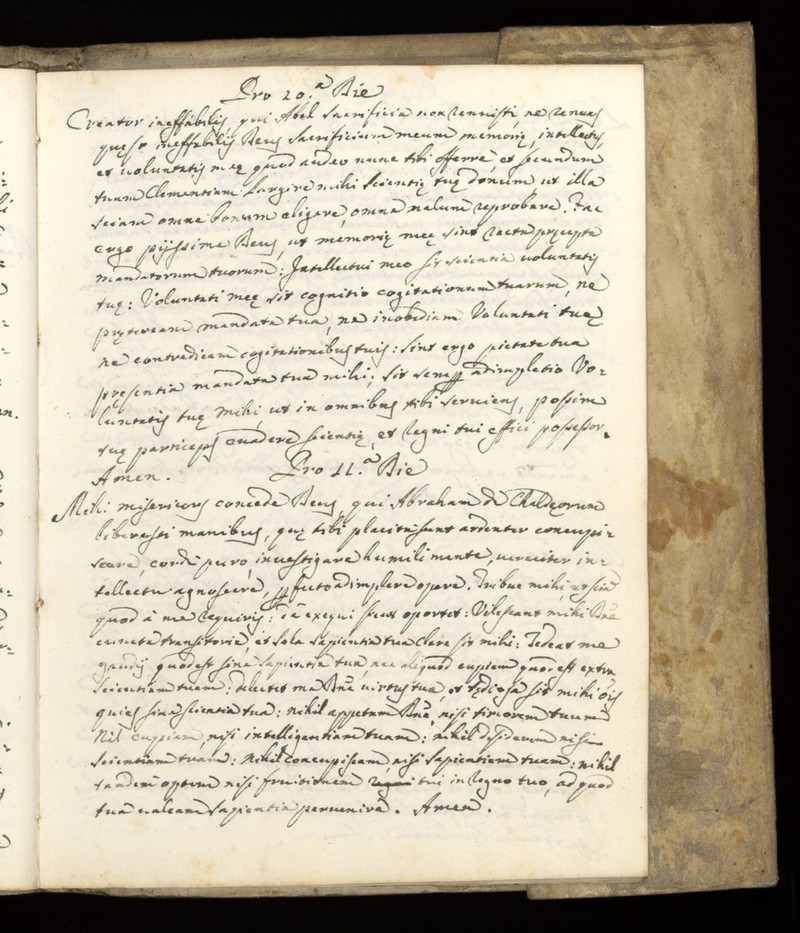 Pro 10.ª Die
Creator ineffabilis, qui Abel sacrificia non renuisti ne renuas
quęso ineffabilis Deus sacrificium meum memorię, intellectus,
et voluntatis meę quod audeo nunc tibi offerre, et secundum
tuam Clementiam largire mihi scientię tuę donum ut illa
sciam omne bonum eligere, omne malum reprobare. Fac
ergo pijssime Deus, ut memorię meę sint recta pręcepta
mandatorum tuorum: Intellectui meo sit scientia voluntatis
tuę: Voluntati meę sit cognitio cogitationum tuarum, ne
pręteream mandata tua, ne inobediam Voluntati tuę
ne contradicam cogitationibus tuis: sint ergo pietate tua
pręsentia mandata tua mihi; sit semp adimpletio Vo=
luntatis tuę mihi, ut in omnibus tibi serviens, possim
tuę particeps evadere scientię, et regni tui effici possessor.
Amen.
Pro 11.ª Die
Mihi misericors concede Deus, qui Abraham de Chaldęorum
liberasti manibus, quę tibi placita sunt ardenter concupi=
scere, corde puro, investigare humili mente, veraciter in=
tellectu agnoscere, pfecto adimplere opere. Tribue mihi, ut sciā
quod à me requiris: exequi sicut oportet: Vilescant mihi Dnē
cuncta transitoria, et sola sapientia tua clara sit mihi: Tedeat me
gaudij quod est sine sapientia tua, nec aliquod cupiam quod est extra
scientiam tuam: delectet me Dnē virtus tua, et tędiosa sit mihi oīs
quies sine scientia tua: nihil appetam Dnē, nisi timorem tuum
Nil cupiam, nisi intelligentiam tuam: nihil desiderem nisi
scientiam tuam: Nihil concupiscam, nisi sapientiam tuam: nihil
tandem optem nisi fruitionem tui in regno tuo, ad quod
tua valeam sapientia pervenire. Amen.